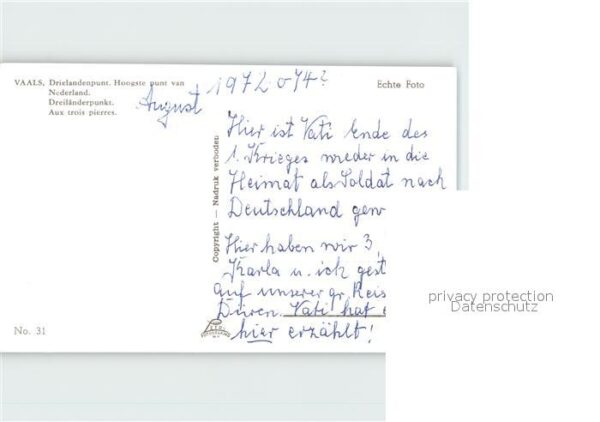 VAALS, Drielandenpunt. Hoogste punt van
Nederland.
Dreiländerpunkt.
Aux trois pierres.
Echte Foto
August 1972 o 74?
Hier ist Vati Ende des
1. Krieges wieder in die
Heimat als Soldat nach
Deutschland gew
Hier haben wir 3,
Karla u. ich gest
auf unserer gr. Reis
Düren. Vati hat
hier erzählt!
Copyright — Nadruk verboden
No. 31
privacy protection
Datenschutz